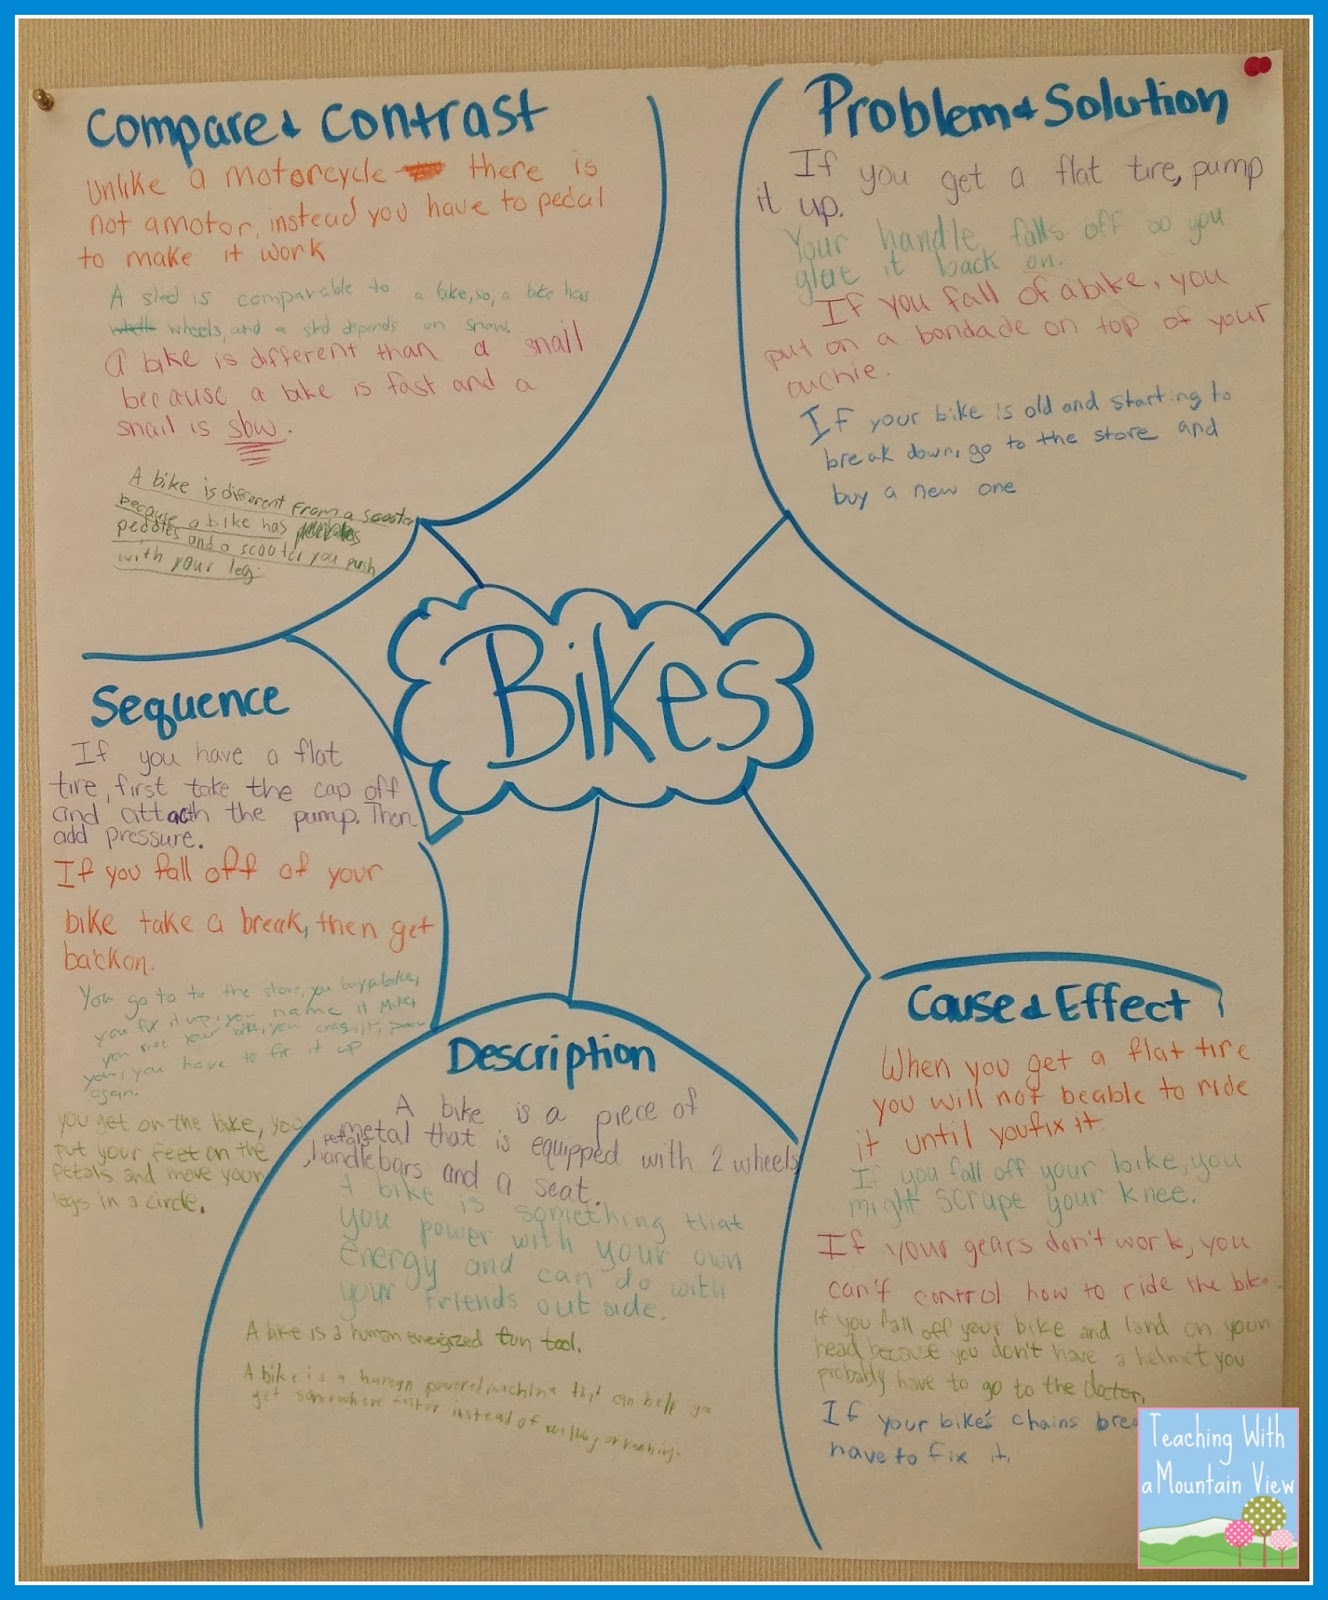 Compare & Contrast
Unlike a motorcycle there is
not a motor, instead you have to pedal
to make it work
A sled is comparable to a bike, so, a bike has
wheels, and a sled depends on snow.
A bike is different than a snail
because a bike is fast and a
snail is slow.
A bike is different from a scooter
because a bike has
peddles and a scooter you push
with your leg.
Problem & Solution
If you get a flat tire, pump
it up.
Your handle falls off so you
glue it back on.
If you fall of a bike, you
put on a bandade on top of your
ouchie.
If your bike is old and starting to
break down, go to the store and
buy a new one
Bikes
Sequence
If you have a flat
tire, first take the cap off
and attach the pump. Then
add pressure.
If you fall off of your
bike take a break, then get
back on.
You go to to the store, you buy a bike,
you fix it up, you name it Mike,
you ride your bike, you crash it, poor
you, you have to fix it up
again.
you get on the bike, you
put your feet on the
petals and move your
legs in a circle.
Description
A bike is a piece of
metal that is equipped with 2 wheels
petals, handlebars and a seat.
A bike is something that
you power with your own
energy and can do with
your friends outside.
A bike is a human energized fun tool.
A bike is a human powered machine that can help you
get somewhere faster instead of walking or running.
Cause & Effect
When you get a flat tire
you will not be able to ride
it until you fix it.
If you fall off your bike, you
might scrape your knee.
If your gears don't work, you
can't control how to ride the bike.
If you fall off your bike and land on your
head because you don't have a helmet you
probably have to go to the doctor.
If your bike's chains
have to fix it.
Teaching With
a Mountain View